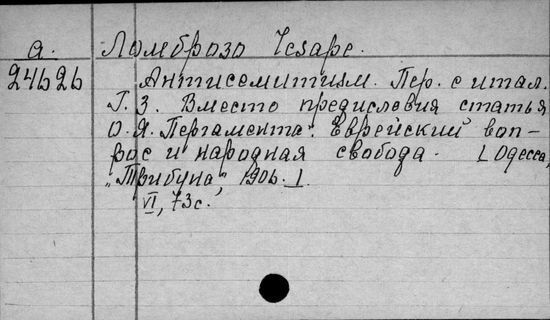 а. Ломброзо Чезаре.
24626 Антисемитизм. Пер. с итал.
Г. З. Вместо предисловия статья
О.Я. Пергамента: "Еврейский воп-
рос и народная свобода. [Одесса,
"Трибуна", 1906.]
VI, 73с.